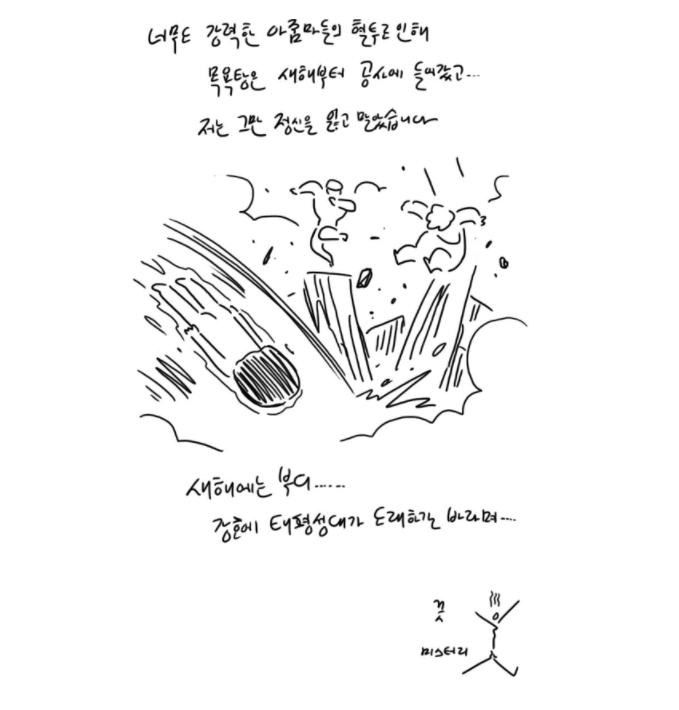 너무도 강력한 아줌마들의 혈투로 인해
목욕탕은 새해부터 공사에 들어갔고...
저는 그만 정신을 잃고 말았습니다
새해에는 부디......
강호에 태평성대가 도래하기를 바라며....
끗
미스터리